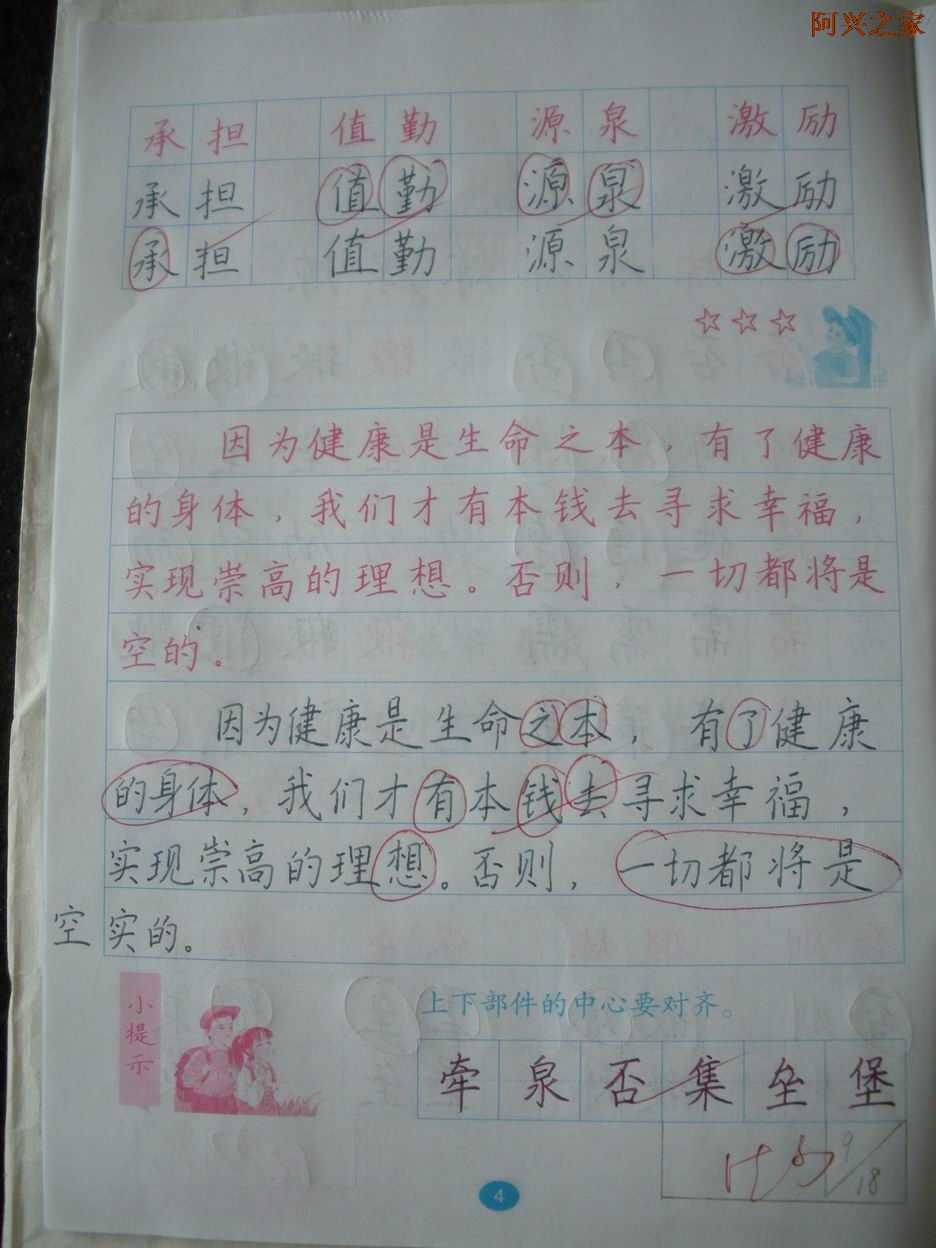 阿兴之家
承担 值勤 源泉 激励
承担 值勤 源泉 激励
承担 值勤 源泉 激励
因为健康是生命之本，有了健康
的身体，我们才有本钱去寻求幸福，
实现崇高的理想。否则，一切都将是
空的。
因为健康是生命之本，有了健康
的身体，我们才有本钱去寻求幸福，
实现崇高的理想。否则，一切都将是
空实的。
小提示
上下部件的中心要对齐。
牵泉否集垒堡
9/18
4